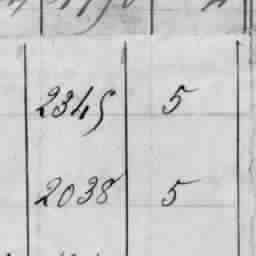 2345 5
2038 5